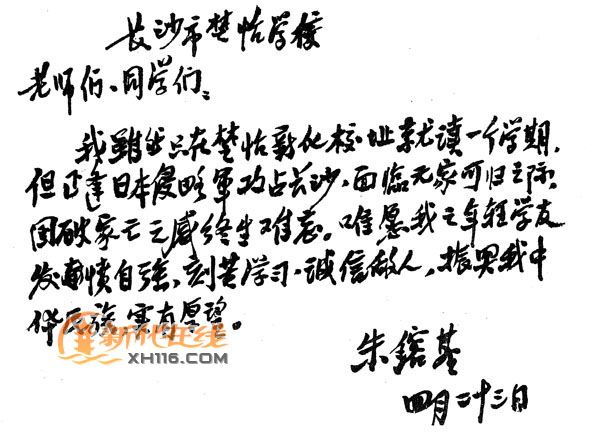 长沙市楚怡学校
老师们、同学们：
我虽然只在楚怡新化校址就读一个学期，
但正逢日本侵略軍攻占长沙，面临无家可归之际，
国破家亡之感终生难忘。唯愿我之年轻学友
发奋自强，刻苦学习，诚信做人，振兴我中
华民族，实有厚望。
新化在线
XH116.COM
朱鎔基
四月二十三日